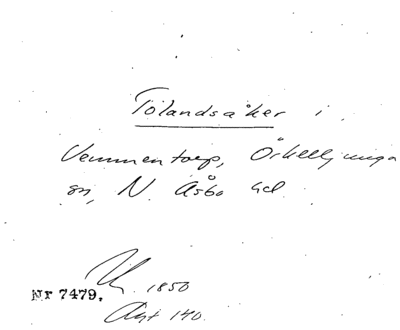 Tolandsåker i
Vemmentorp, Örkelljunga
sn, N. Åsbo hd
1850
Nr 7479.
Avt 140.